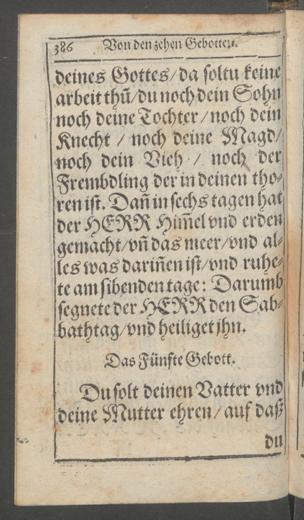 386 Von den zehen Gebotten.
deines Gottes/ da soltu keine
arbeit thũ/ du noch dein Sohn
noch deine Tochter/ noch dein
Knecht / noch deine Magd/
noch dein Vieh / noch der
Frembdling der in deinen tho-
ren ist. Dañ in sechs tagen hat
der HERR Him̃el vnd erden
gemacht/ vñ das meer/ vnd al-
les was dariñen ist/ vnd ruhe-
te am sibenden tage: Darumb
segnete der HERR den Sab-
bathtag/ vnd heiliget jhn.
Das Fünfte Gebott.
Du solt deinen Vatter vnd
deine Mutter ehren/ auf daß
du